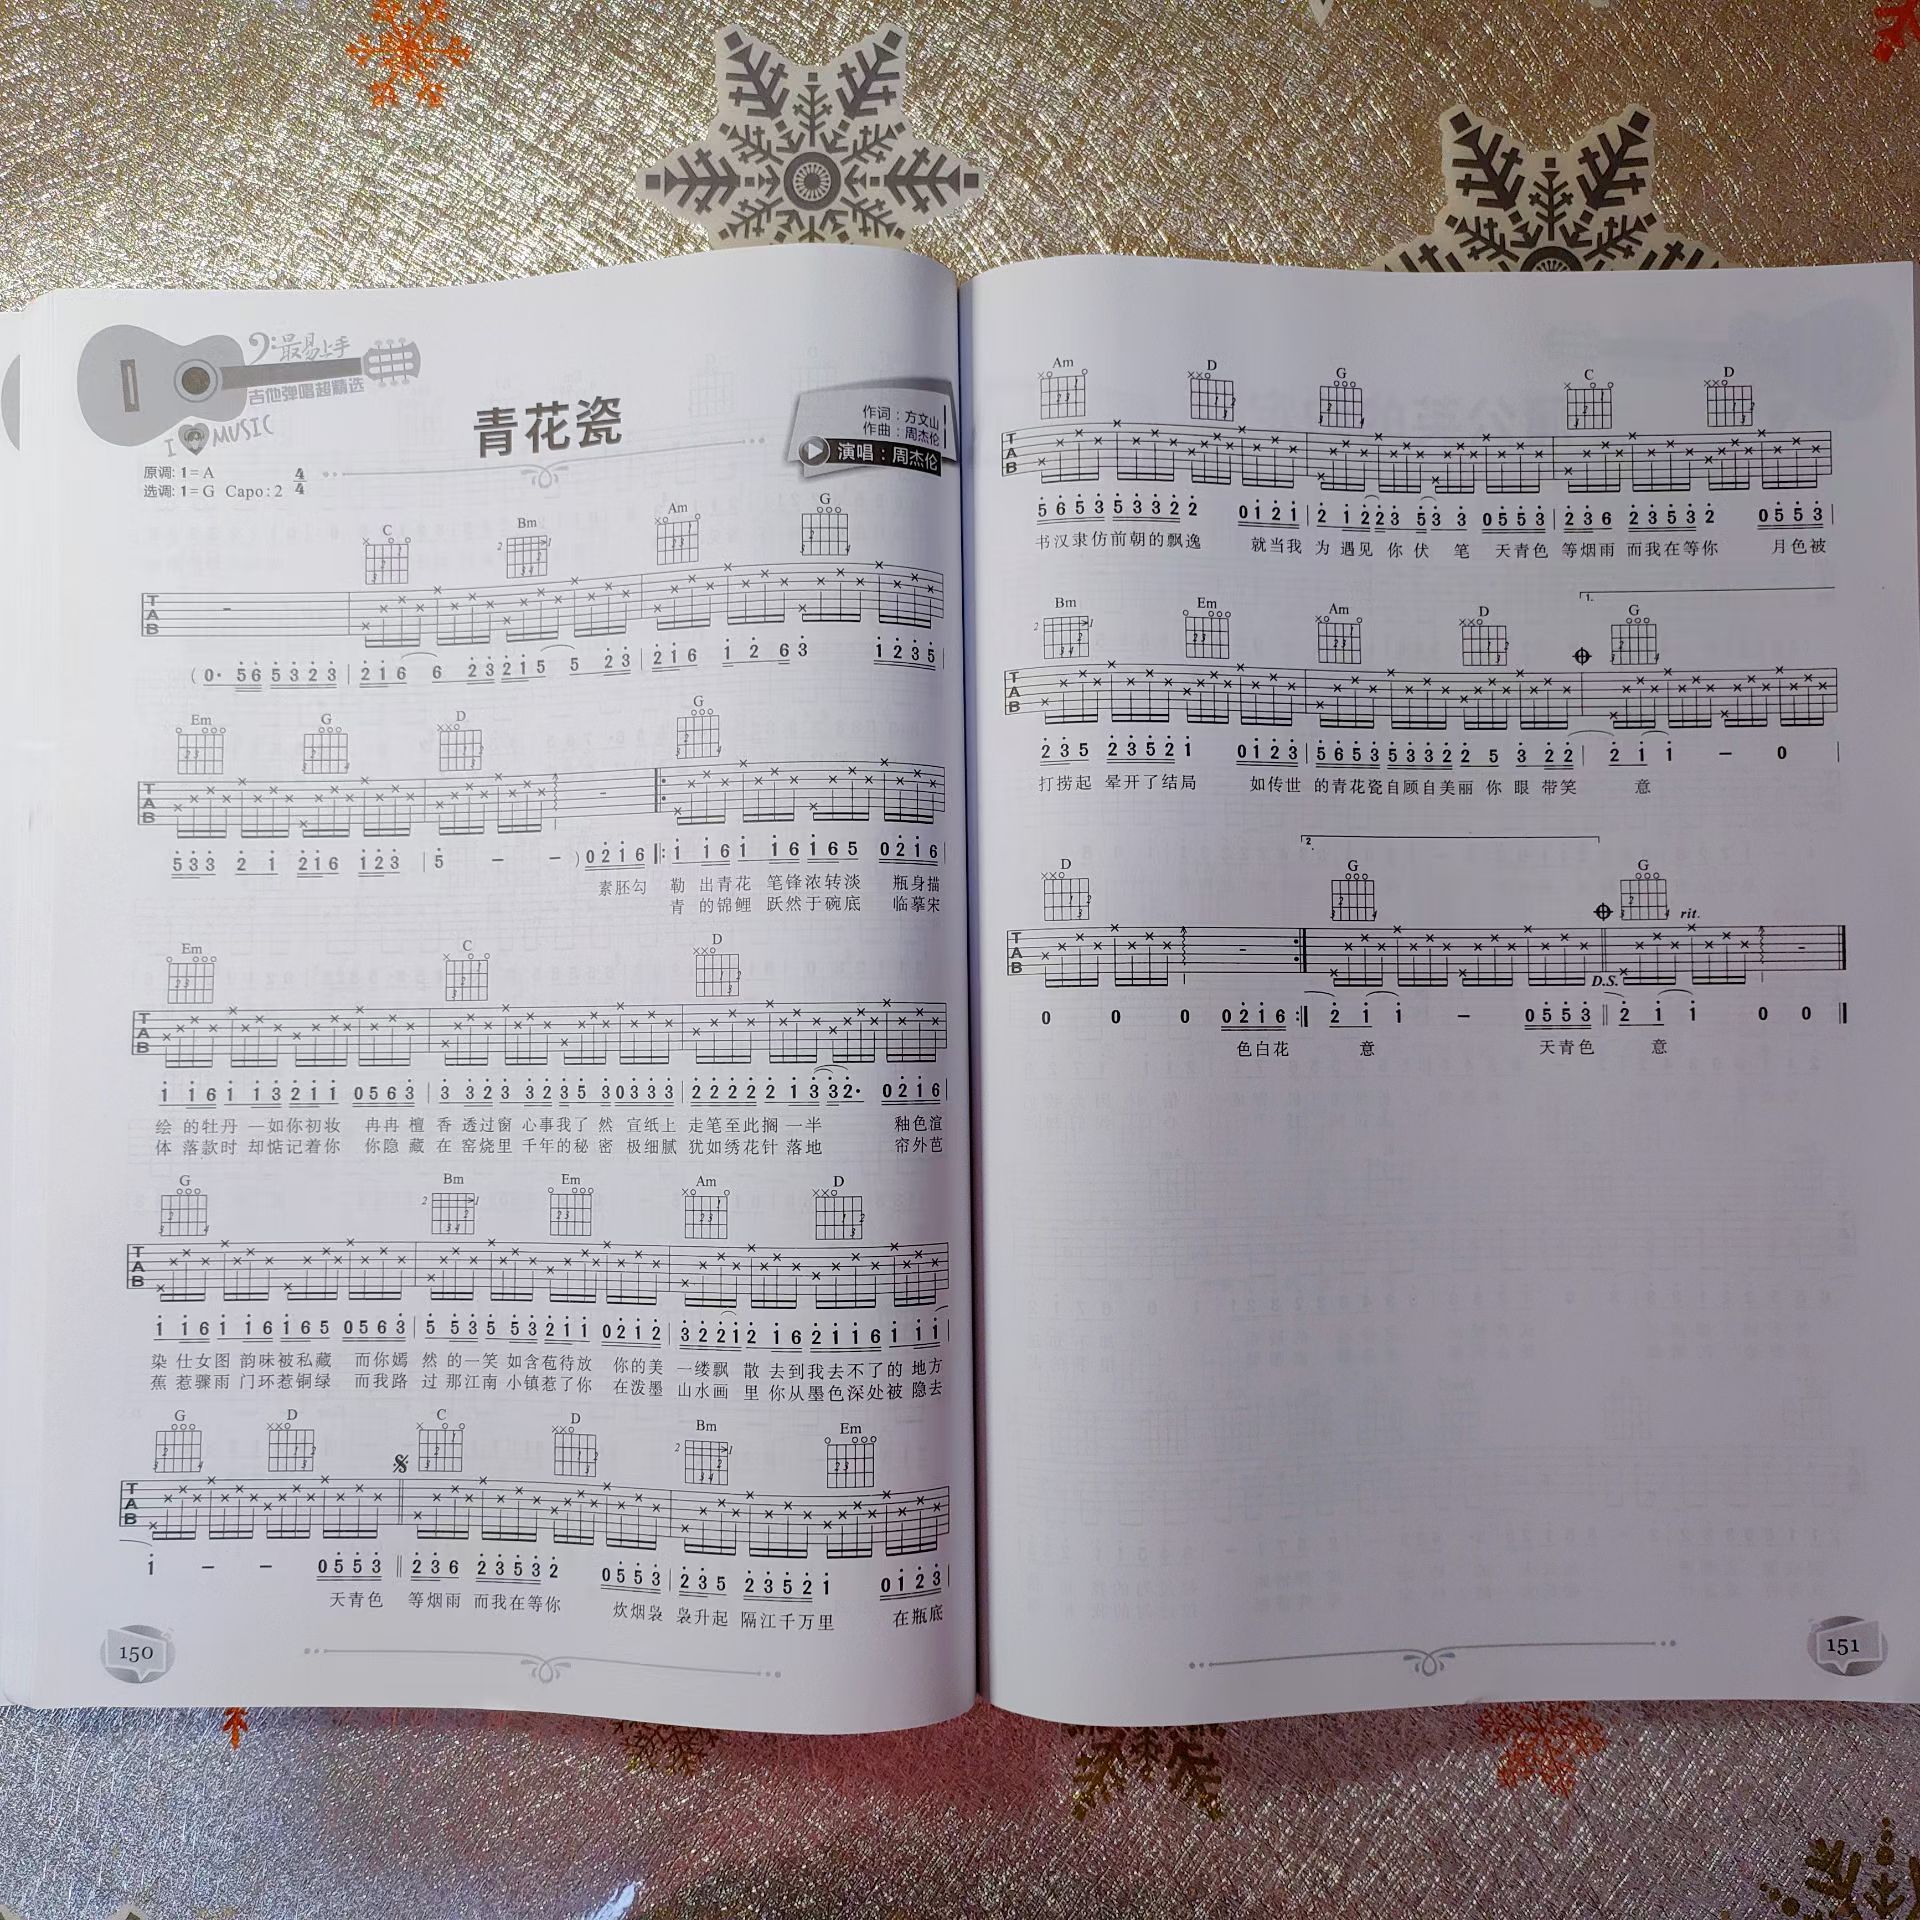 最易上手
吉他弹唱超精选
I MUSIC
青花瓷
作词：方文山
作曲：周杰伦
演唱：周杰伦
原调: 1=A 4/4
选调: 1=G Capo: 2
C Bm Am G
TAB
(0· 56 5323 | 216 6 23215 5 23 | 216 1 2 63 1235 |
Em G D G
TAB
533 2 1 216 123 | 5 - - ) 0216 ‖: 1 161 16165 0216 |
素胚勾 勒 出青花 笔锋浓转淡 瓶身描
青 的锦鲤 跃然于碗底 临摹宋
Em C D
TAB
1 161 13211 0563 | 3 323 3235 30333 | 22222 1332· 0216
绘 的牡丹 一如你初妆 冉冉 檀 香 透过窗 心事我了 然 宣纸上 走笔至此搁 一半 釉色渲
体 落款时 却惦记着你 你隐 藏 在 窑烧里 千年的秘 密 极细腻 犹如绣花针 落地 帘外芭
G Bm Em Am D
TAB
1 161 16165 0563 | 5 535 53211 0212 | 32212 162116 1 11 |
染 仕女图 韵味被私藏 而你嫣 然 的一笑 如含苞待放 你的美 一缕飘 散 去到我去不了的 地方
蕉 惹骤雨 门环惹铜绿 而我路 过 那江南 小镇惹了你 在泼墨 山水画 里 你从墨色深处被 隐去
G D C D Bm Em
TAB
1 - - 0553 ‖ 236 23532 0553 | 235 23521 0123 |
天青色 等烟雨 而我在等你 炊烟袅 袅升起 隔江千万里 在瓶底
150
Am D G C D
TAB
5653 53322 0121 | 2 1223 533 0553 | 236 23532 0553 |
书汉隶仿前朝的飘逸 就当我 为 遇见 你 伏 笔 天青色 等烟雨 而我在等你 月色被
Bm Em Am D 1. G
TAB
235 23521 0123 | 565353322 25 3 22 | 2 1 1 - 0 |
打捞起 晕开了结局 如传世 的青花瓷自顾自美丽 你 眼 带笑 意
D 2. G G rit.
TAB
D.S.
0 0 0 0216 :‖ 2 1 1 - 0553 ‖ 2 1 1 0 0 ‖
色白花 意 天青色 意
151